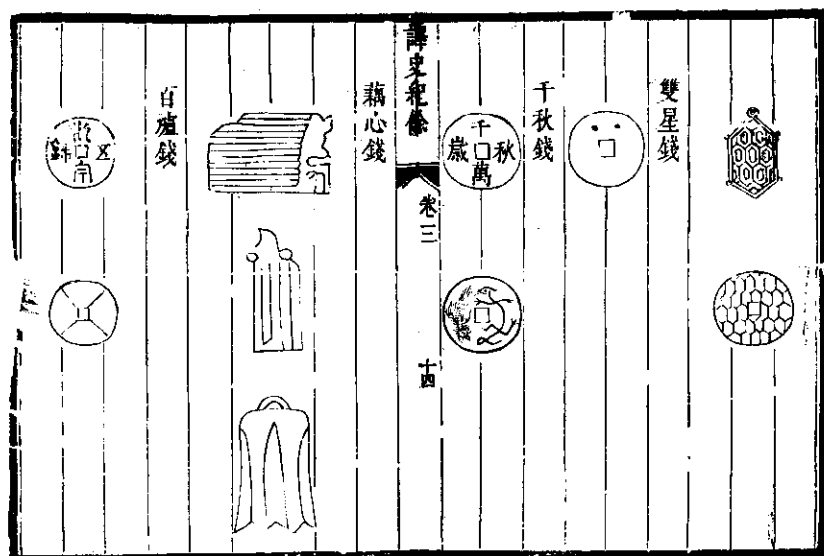 雙星錢
千秋錢
千秋萬歲
譯史紀餘
卷三
十四
藕心錢
百爐錢
五